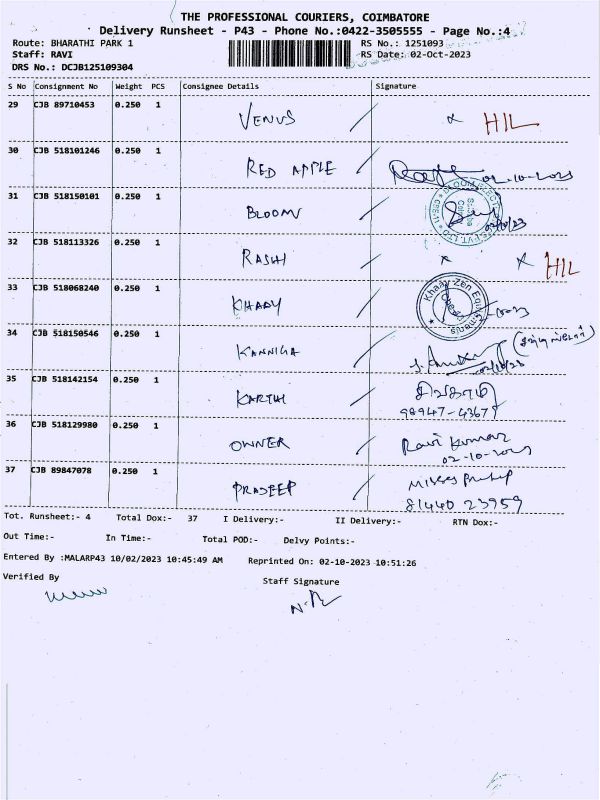 THE PROFESSIONAL COURIERS, COIMBATORE
Delivery Runsheet - P43 - Phone No.:0422-3505555 - Page No.:4
Route: BHARATHI PARK 1 RS No.: 1251093
Staff: RAVI RS Date: 02-Oct-2023
DRS No.: DCJB125109304
S No Consignment No Weight PCS Consignee Details Signature
29 CJB 89710453 0.250 1 VENUS x HIL
30 CJB 518101246 0.250 1 RED APPLE 02-10-2023
31 CJB 518150101 0.250 1 BLOOM 02/10/23
32 CJB 518113326 0.250 1 RASHI x x HIL
33 CJB 518068240 0.250 1 KHAAY Khaay Zen Equipments
34 CJB 518150546 0.250 1 KANNIGA 02/10/23
35 CJB 518142154 0.250 1 KARTHI
98947-43679
36 CJB 518129980 0.250 1 OWNER Ravi Kumar
02-10-2023
37 CJB 89847078 0.250 1 PRADEEP
81440 23959
Tot. Runsheet:- 4 Total Dox:- 37 I Delivery:- II Delivery:- RTN Dox:-
Out Time:- In Time:- Total POD:- Delvy Points:-
Entered By :MALARP43 10/02/2023 10:45:49 AM Reprinted On: 02-10-2023 10:51:26
Verified By Staff Signature